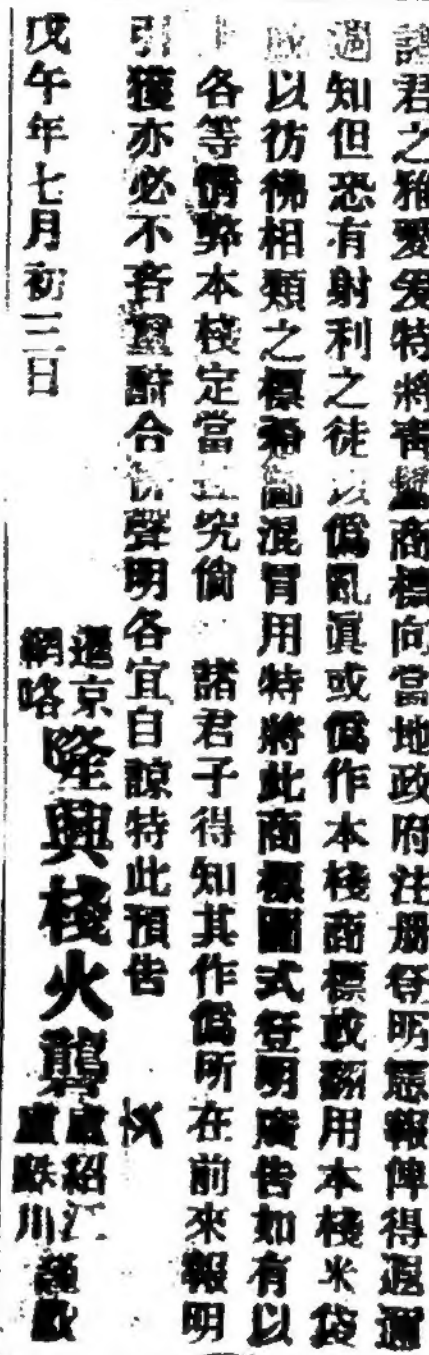 諸君之雅愛爰特將青盤商標向當地政府注册登明憲報俾得遐邇
週知但恐有射利之徒以僞亂眞或僞作本棧商標或翻用本棧米袋
或以彷彿相類之標希圖混冐用特將此商標圖式登明廣告如有以
上各等情弊本棧定當追究倘 諸君子得知其作僞所在前來報明
引獲亦必不吝重酧合併聲明各宜自諒特此預告
戊午年七月初三日
暹京 網咯 隆興棧火礱 盧紹江 盧 川 謹啟